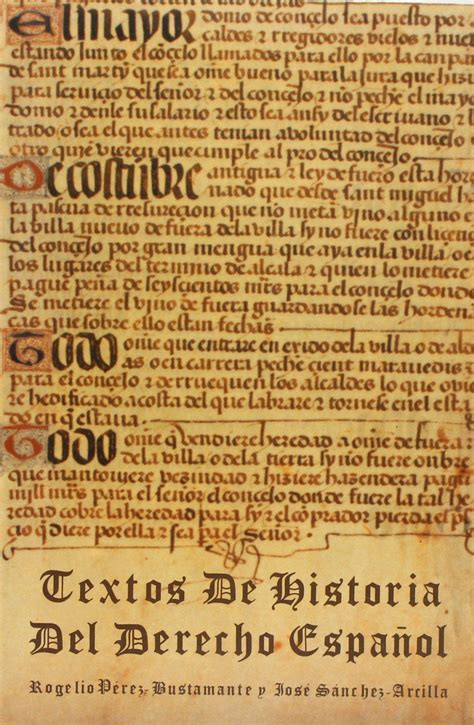 El mayor domo de concejo sea puesto por
caldes z rregidores viejos z nue
estando junto el cõcejo llamados para ello por la canpan
de sant martȳ que sea ome bueno para la jura que hiz
para servicio del señor z del concejo z no peche el mayor
domo z denle su salario z esto sea ansy del escriuano z l
trado o sea el que antes tenian a voluntad del concejo
otro quiẽ vieren que cumple al pro del concejo.
De costũbre antigua z ley de fuero esta hor
nado que desde sant miguel h
ta pascua de rresureçion que no metã vino alguno
la villa nueuo de fuera de la villa sy no fuere con licen
del concejo por gran mengua que aya en la villa o
los lugares del termino de alcala z quien lo metiere
pague pena de seyscientos mrs para el concejo donde
Se metiere el vino de fuera guardando se las horden
ças que sobre ello estan fechas.
Todo ome que entrare en exido de la villa o de al
as o en carrera peche cient maravedis
para el concejo z derruequen los alcaldes lo que ovi
re hedificado acosta del que labrare z tornese en el est
do en q̃ estava.
Todo ome q̃ vendiere heredad a ome de fuera
de la villa o de la tierra sy no fuere onbre
que mantoviere vezindad z hiziere hazendera pague
mill mrs para el señor el concejo donde fuere la tal h
redad cobre la heredad para sy z el comprador pierda el p
cio q̃ diere por ella z sea para el Señor.
Textos De Historia
Del Derecho Español
Rogelio Pérez-Bustamante y José Sánchez-Arcilla